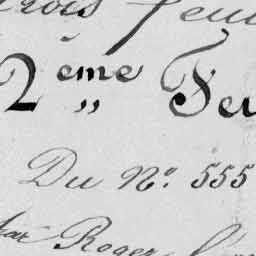 trois feu
2ème Feu
Du No. 555
par Roger